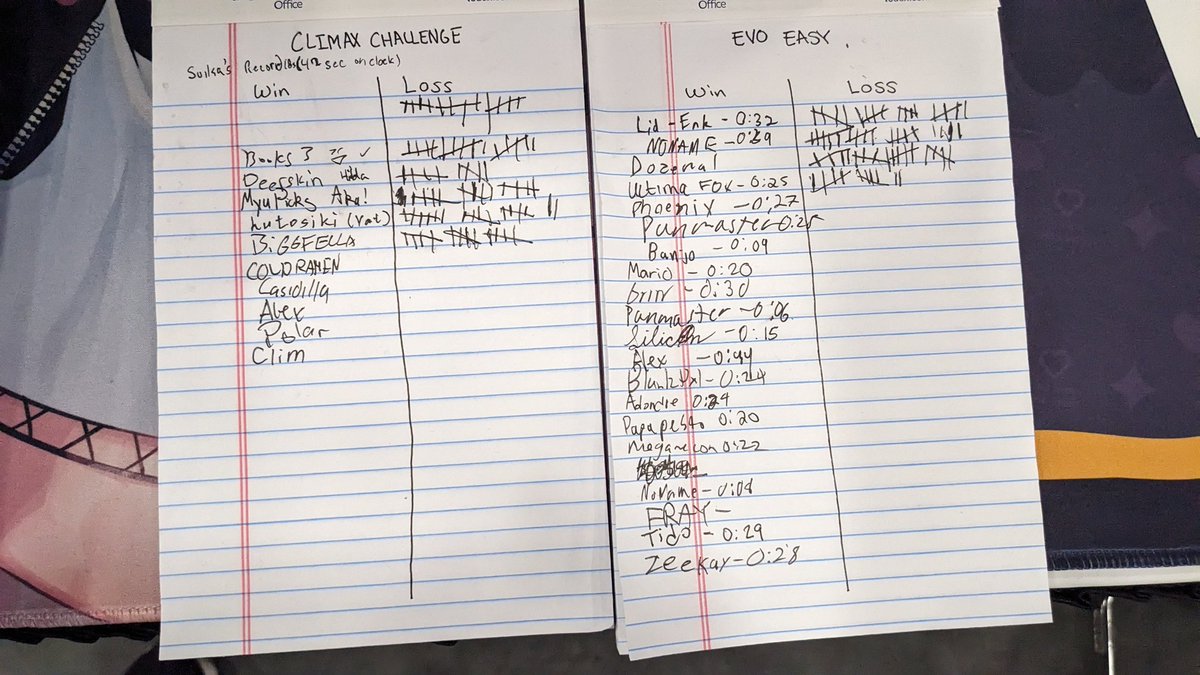 Office
CLIMAX CHALLENGE
Record
sec on clock)
Win
Loss
Books?
Deerskin
Aka!
Lutosiki (rat)
BIGGFELLA
COLDRAMEN
Casidilla
Alex
Polar
Clim
Office
EVO EASY
Win
Loss
Lid-Enk - 0:32
NONAME -
Dozenal
Ultima Fox - 0:25
Phoenix - 0:27
Panmaster
Banjo - 0:09
Mario - 0:20
- 0:30
Panmaster - 0:06
- 0:15
Alex - 0:44
- 0:24
Papapesto 0:20
Meganeicon 0:22
NoName - 0:08
FRAY -
Tido - 0:29
Zeekay - 0:28